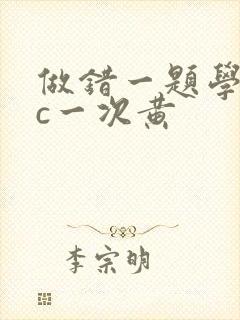 做錯一題學
c一次黄
李宗明